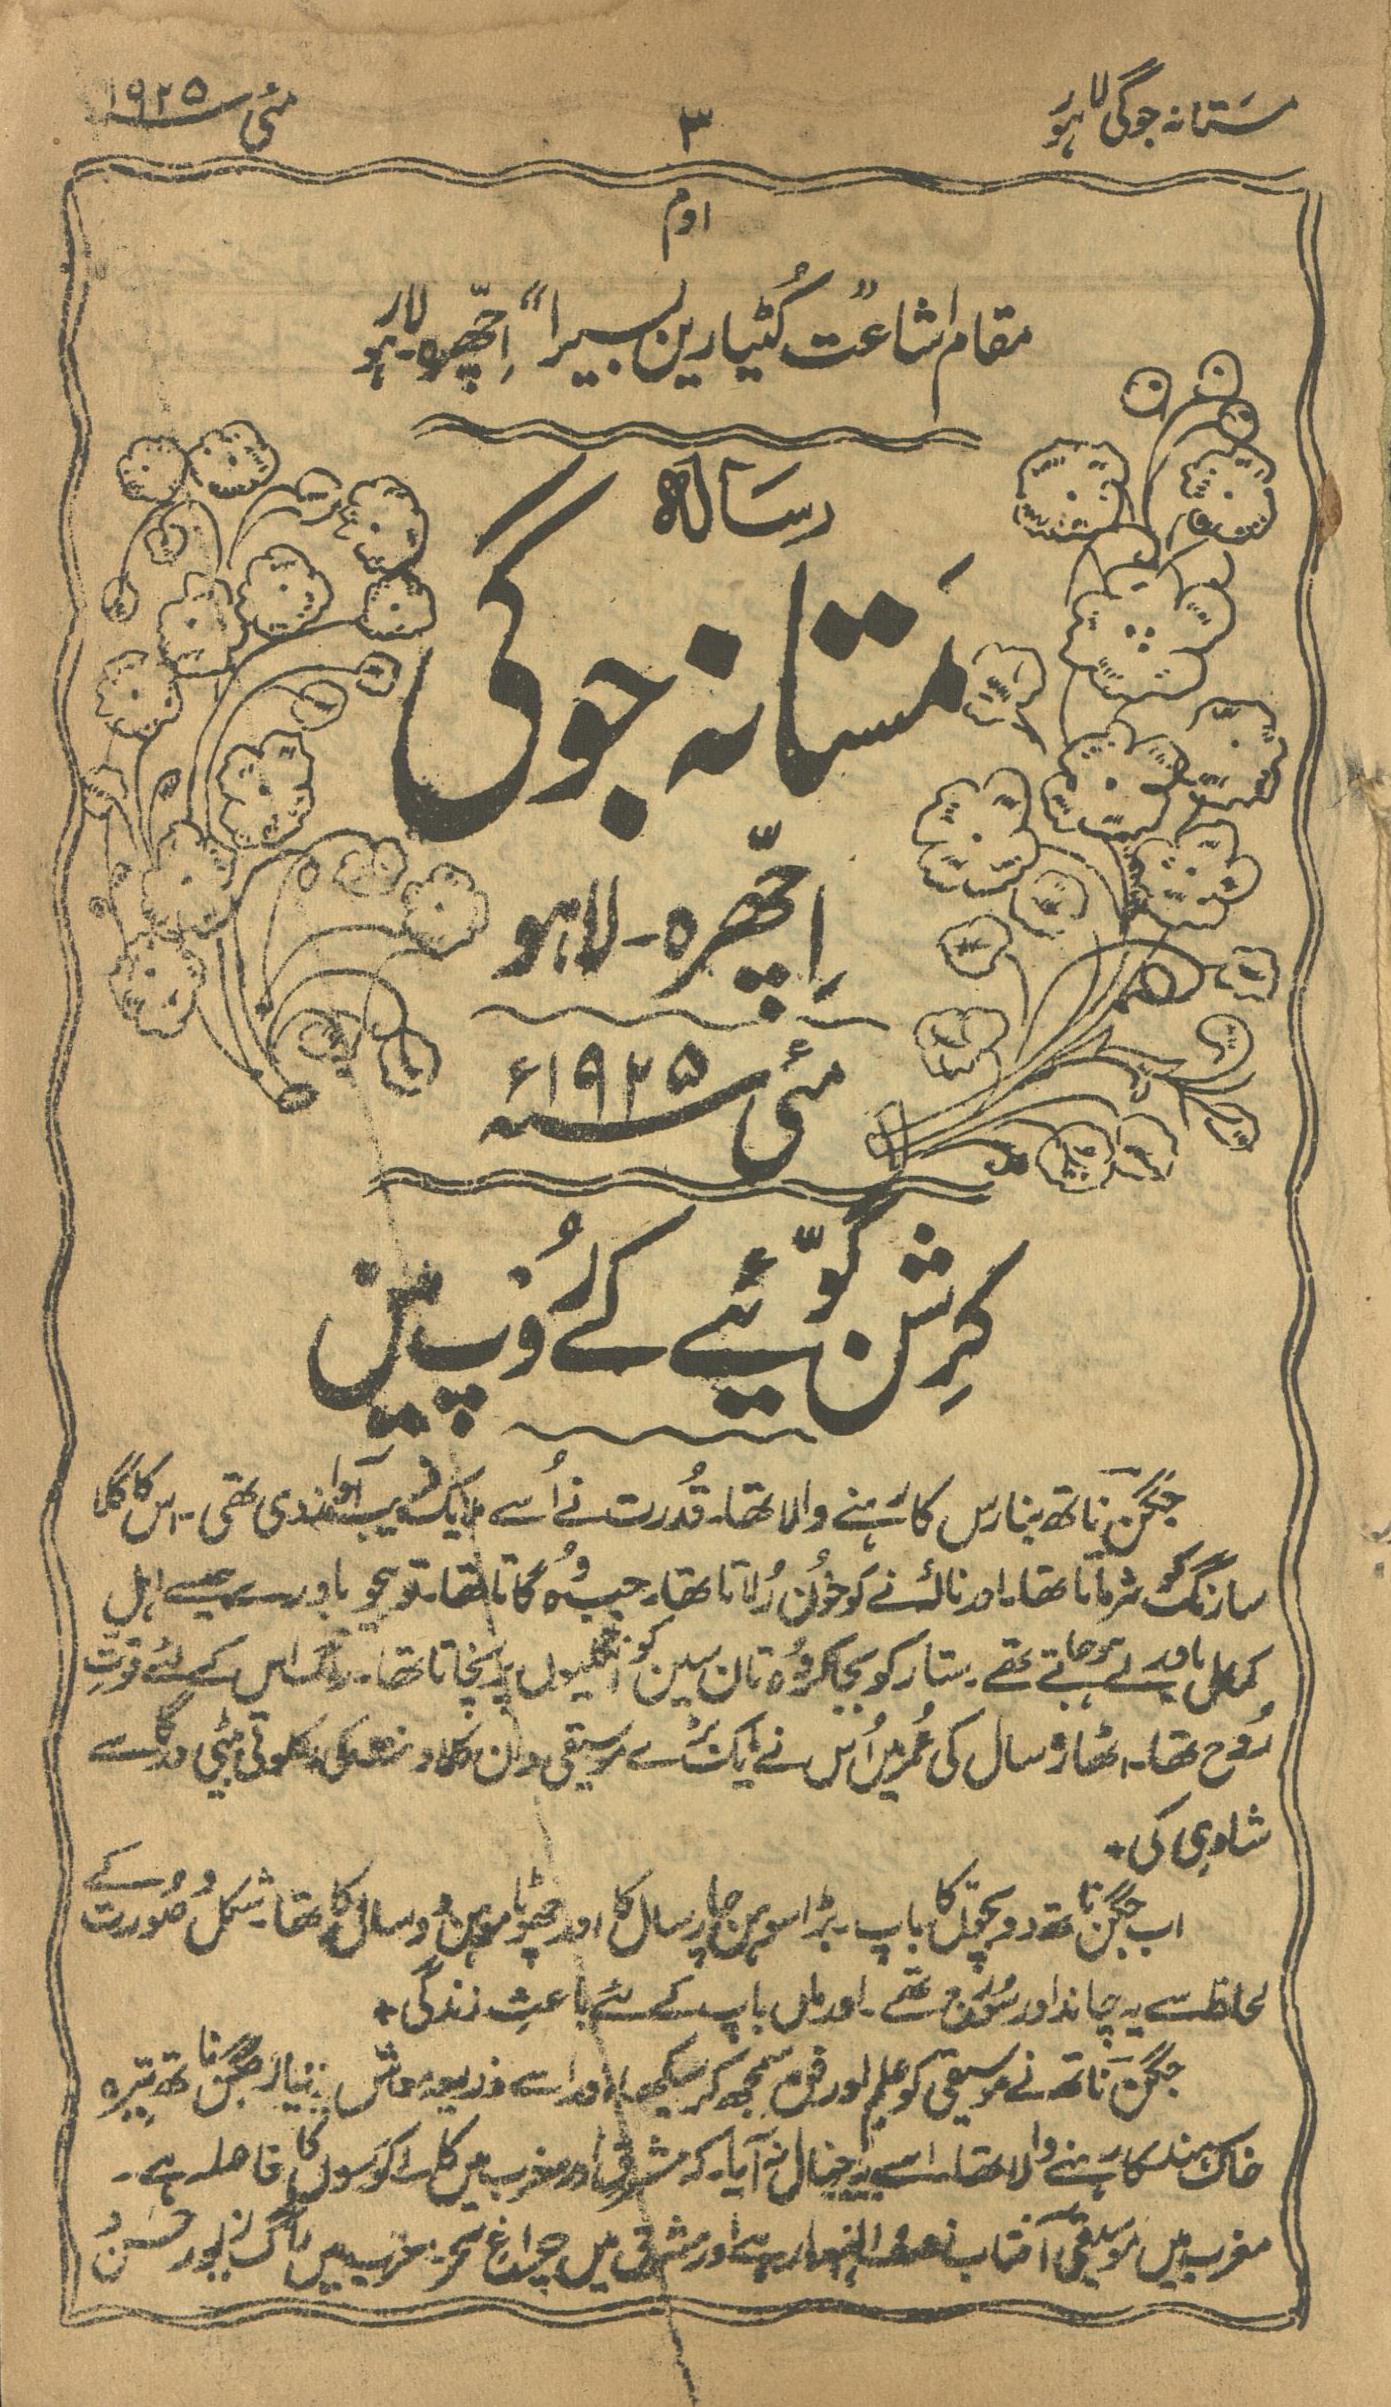 مستانہ جوگی لاہور
۳
مئی ۱۹۲۵
اوم
مقام اشاعت "کُٹیا رین بسیرا" اِچھّرہ۔ لاہور
رسالہ
مستانہ جوگی
اِچھّرہ۔ لاہور
مئی سنہ ۱۹۲۵ء
کرِشن گوّیئے کے رُوپ میں
جگن ناتھ بنارس کا رہنے والا تھا۔ قُدرت نے اُسے ایک عجیب آواز دی تھی۔ اس کا گلا
سارنگی کو شرماتا تھا۔ اور نالۂ نے کو خُون رُلاتا تھا۔ جب وُہ گاتا تھا۔ تو بیجو باورے جیسے اہلِ
کمال باورے ہو جاتے تھے۔ ستار کو بجا کر وُہ تان سین کو انگلیوں پر نچاتا تھا۔ راگ اس کے لئے قوتِ
رُوح تھا۔ اٹھارہ سال کی عُمر میں اُس نے ایک بڑے موسیقی دان کی اکلوتی بیٹی درگا سے
شادی کی ٭
اب جگن ناتھ دو بچّوں کا باپ۔ بڑا سوہن چار سال کا اور چھوٹا موہن دو سال کا تھا۔ شکل و صُورت کے
لحاظ سے یہ چاند اور سُورج تھے۔ اور ماں باپ کے لئے باعثِ زندگی ٭
جگن ناتھ نے موسیقی کو علم اور فن سمجھ کر سیکھا۔ اور اسے ذریعہ معاش بنایا۔ جگن ناتھ تیرہ
خاک ہند کا رہنے والا تھا۔ اسے یہ خیال نہ آیا۔ کہ مشرق اور مغرب میں کالے کوسوں کا فاصلہ ہے۔
مغرب میں موسیقی آفتاب نصف النہار ہے اور مشرق میں چراغِ سحر۔ مغرب میں راگ زیور حسن